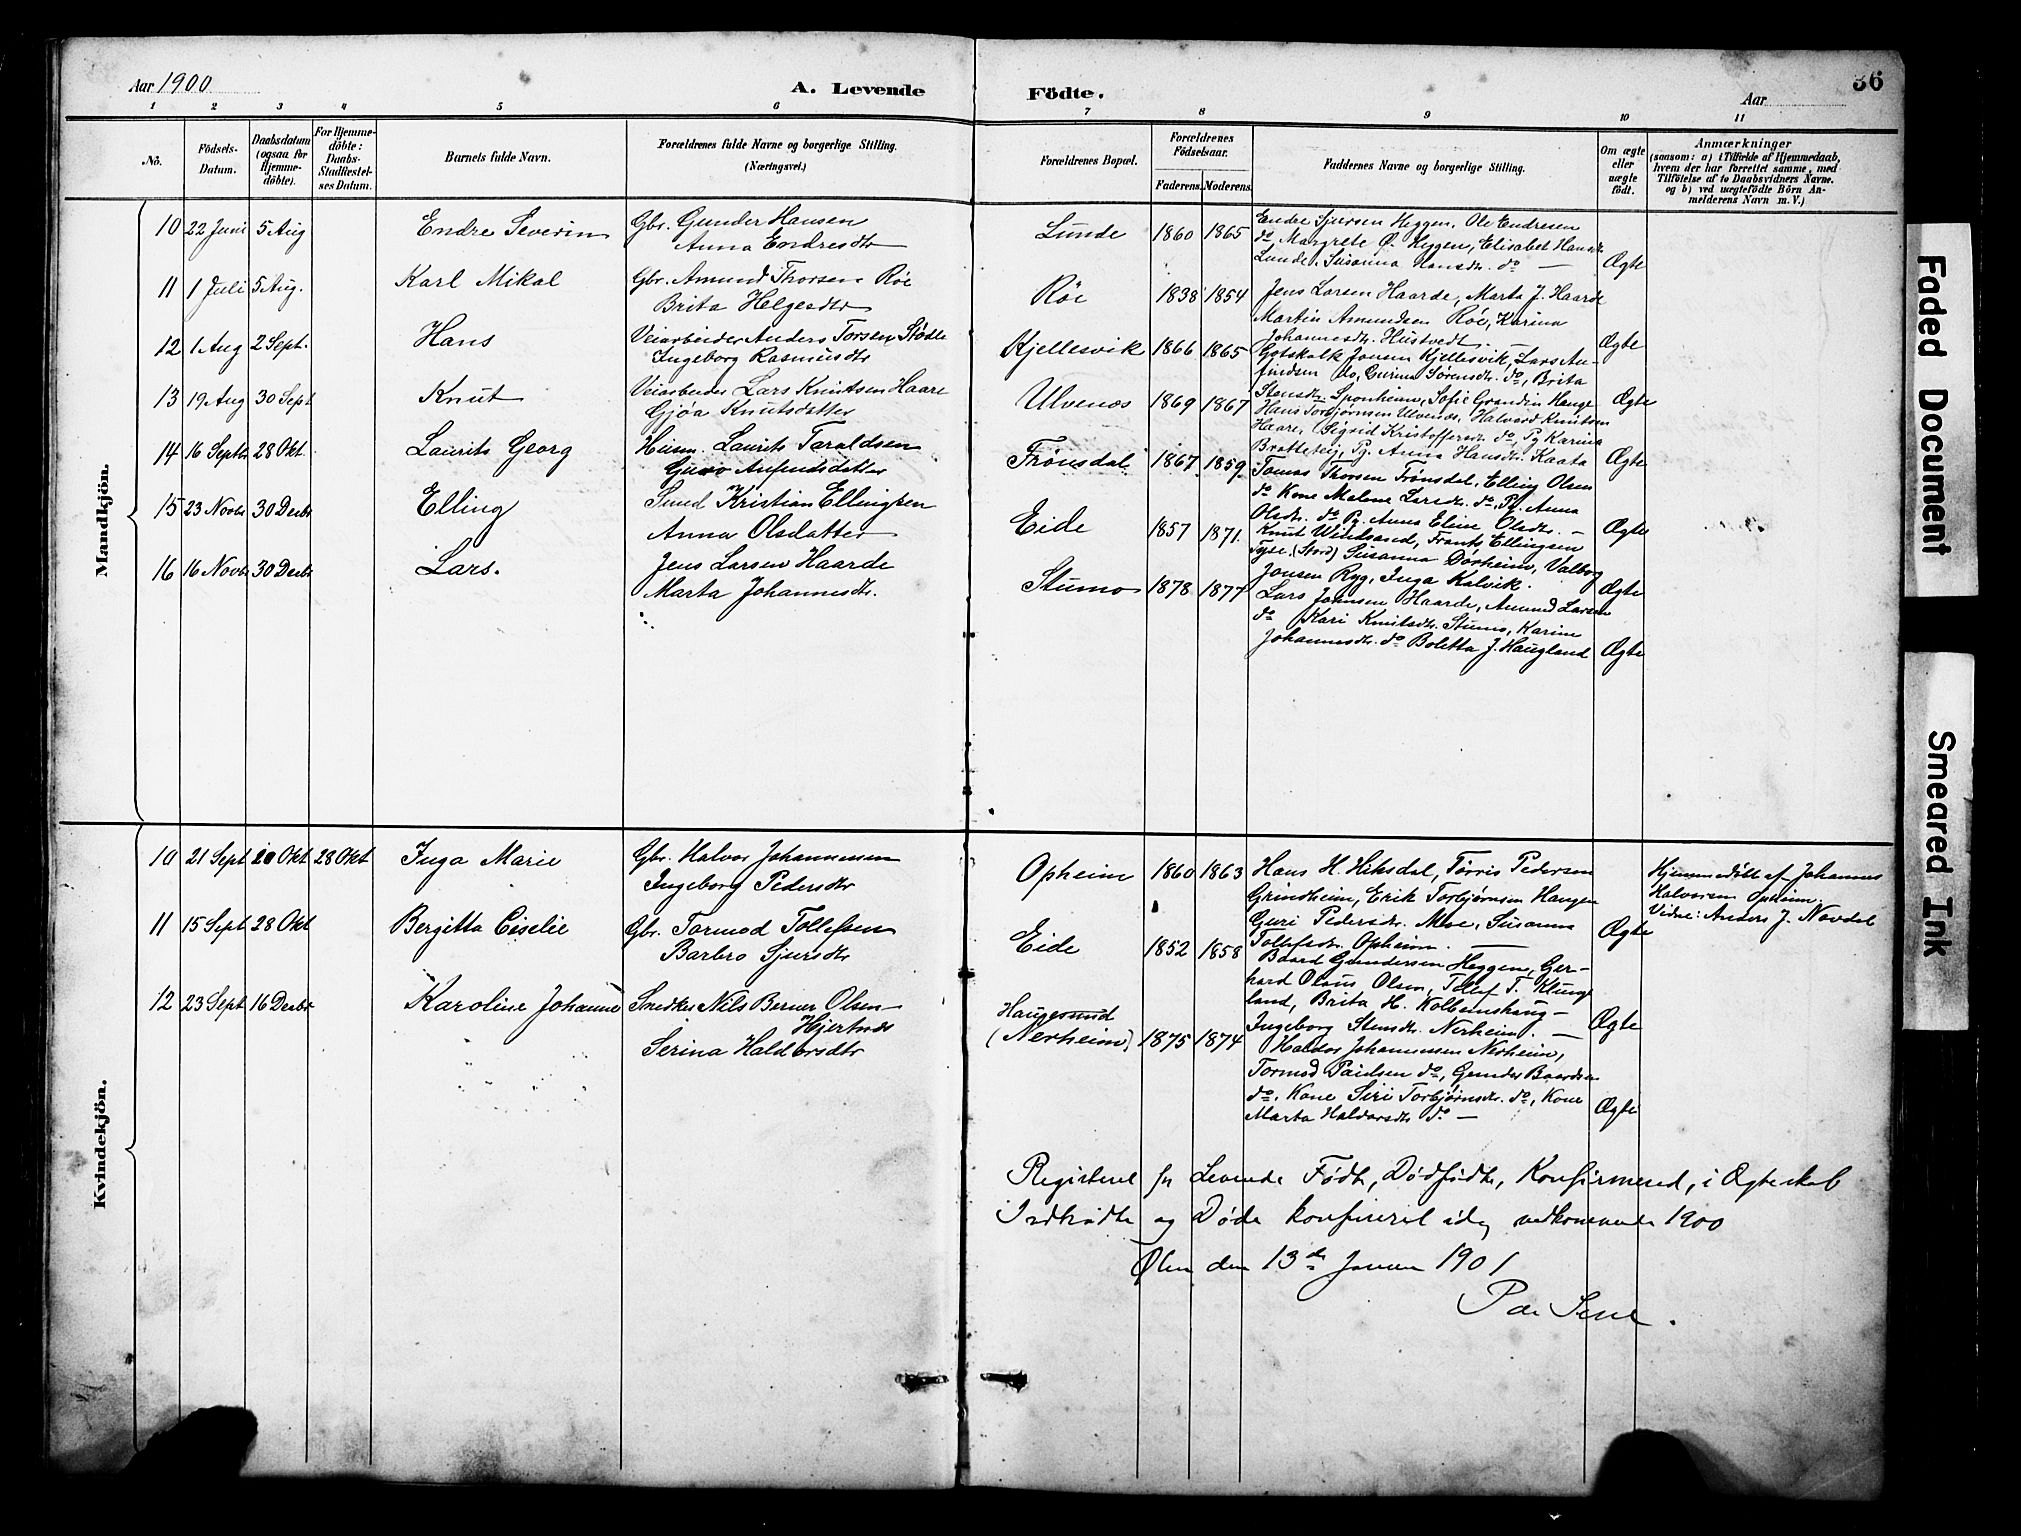 Aar 1900
A. Levende
Födte.
Aar
36
1 2 3 4 5 6 7 8 9 10 11
No.
Födsels-
Datum.
Daabsdatum
(ogsaa for
Hjemme-
döbte).
For Hjemme-
döbte:
Daabs-
Stadfæstel-
ses Datum.
Barnets fulde Navn.
Forældrenes fulde Navne og borgerlige Stilling.
(Næringsvei.)
Forældrenes Bopæl.
Forældrenes
Födselsaar.
Faderens. Moderens.
Faddernes Navne og borgerlige Stilling.
Om ægte
eller
uægte
födt.
Anmærkninger
(saasom: a) i Tilfælde af Hjemmedaab,
hvem der har forrettet samme, med
Tilföielse af to Daabsvidners Navne,
og b) ved uægtefödte Börn An-
melderens Navn m. V.)
Mandkjön.
10 22 Juni 5 Aug Endre Severin Gbr. Gunder Hansen
Anna Endresdtr
Lunde 1860 1865
Endre Sjursen Heggen, Ole Endresen
do, Margrete Ø. Heggen, Elisabet Hansdtr
Lunde, Susanna Hansdtr. do —
Ægte
11 1 Juli 5 Aug. Karl Mikal Gbr. Amund Thorsen Røe
Brita Helgesdtr
Røe 1838 1854
Jens Larsen Haarde, Marta J. Haarde
Martin Amundsen Røe, Karina
Johannesdtr. Hustvedt.
Ægte
12 1 Aug 2 Sept. Hans Veiarbeider Anders Torsen Stødle
Ingeborg Rasmusdtr
Kjellesvik 1866 1865
Gotskalk Jonsen Kjellesvik, Lars An-
findsen do, Gurina Sørensdtr. do, Brita
Stensdtr. Sponheim, Sofie Grandin Hauge
Ægte
13 19 Aug 30 Sept Knut Veiarbeider Lars Knutsen Haare
Gjøa Knutsdatter
Ulvenes 1869 1867
Hans Torbjørnsen Ulvenes, Halvard Knutsen
Haare, Sigrid Kristoffersdtr. do, Pg Karina
Bratteteig, Pg. Anna Hansdtr. Kaata
Ægte
14 16 Septbr 28 Okt. Laurits Georg Husm. Laurits Taraldsen
Guro Anfensdatter
Frønsdal 1867 1859
Tomas Thorsen Frønsdal, Elling Olsen
do Kone Malene Larsdtr. do, Pg. Anna
Olsdtr. do Pg. Anna Eline Olsdtr. —
Ægte
15 23 Novbr 30 Decbr Elling Smed Kristian Ellingsen
Anna Olsdatter
Eide 1857 1871.
Knut Windsand, Frants Ellingsen
Tyse (Stord) Susanna Dørheim, Valborg
Jonsen Ryg, Inga Kalvik.
Ægte
16 16 Novbr 30 Decbr Lars. Jens Larsen Haarde
Marta Johannesdtr.
Stumo 1878 1877
Lars Johnsen Haarde, Amund Larsen
do Kari Knutsdtr. Stumo, Karine
Johannesdtr. do Boletta J. Haugland
Ægte
Kvindekjön.
10 21 Sept 20 Okt 28 Okt Inga Marie Gbr. Halvor Johannessen
Ingeborg Pedersdtr
Opheim 1860 1863
Hans H. Hiksdal, Tørris Pedersen
Grindheim, Erik Torbjørnsen Haugen
Guri Pedersdtr. Moe, Susanna
Tollefsdtr. Opheim. —
Ægte
Hjemmedøbt af Johannes
Halvorsen Opheim.
Vidne: Anders J. Novdal
11 15 Sept 28 Okt Bergitta Ciselie Gbr. Tormod Tollefsen
Barbro Sjursdtr
Eide 1852 1858
Baard Gundersen Heggen, Ger-
hard Olaus Olsen, Tollef T. Kluge
land, Brita H. Kolbeinshaug —
Ingeborg Stensdtr. Nerheim. —
Ægte
12 23 Sept 16 Decbr Karoline Johanne Snedker Nils Berner Olsen
Hjertnæs
Serina Haldorsdtr
Haugesund
(Nerheim) 1875 1874
Haldor Johannessen Nerheim,
Tormod Paulsen do, Gunder Baardsen
do, Kone Siri Torbjørnsdtr. do, Kone
Marta Haldorsdtr do —
Ægte
Registeret for Levende Fødte, Dødfødte, Konfirmered, i Ægteskab
Indtrådte og Døde konfereret idag vedkommende 1900
Ølen den 13de Januar 1901
Faded Document
Smeared Ink